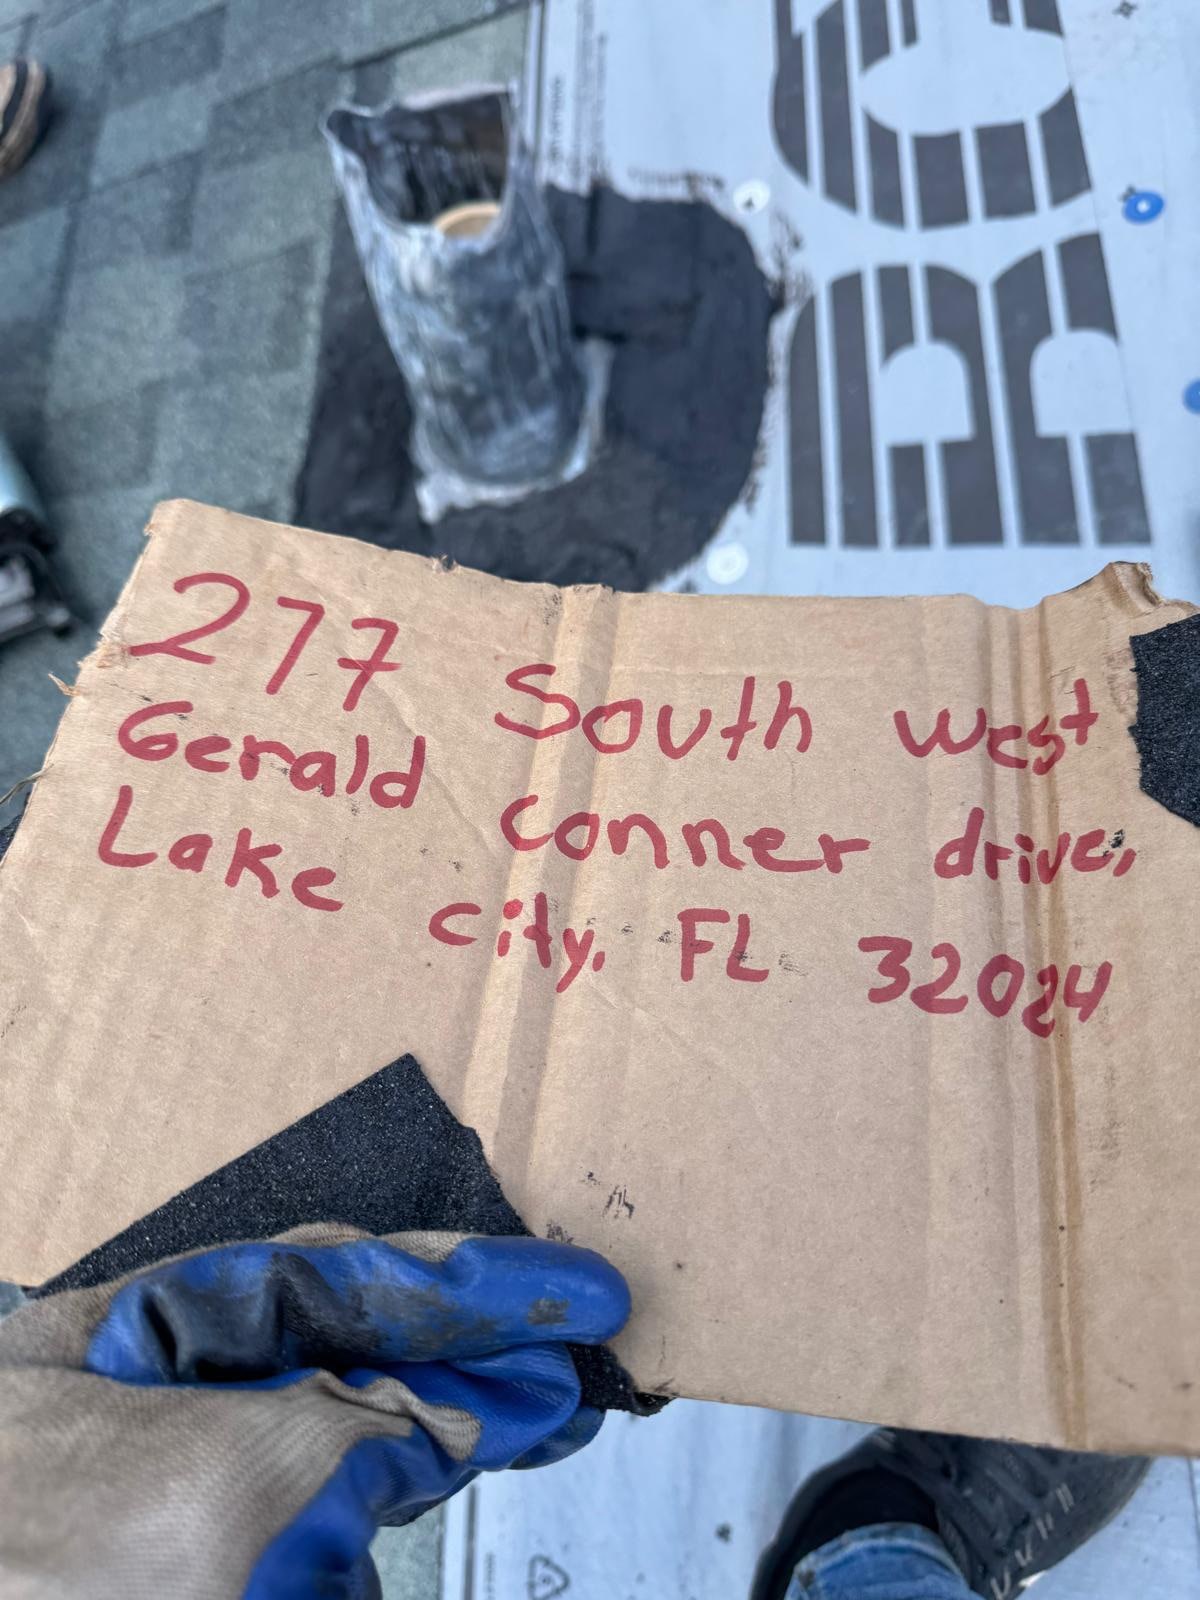 277 South west
Gerald conner drive,
Lake city, FL 32024